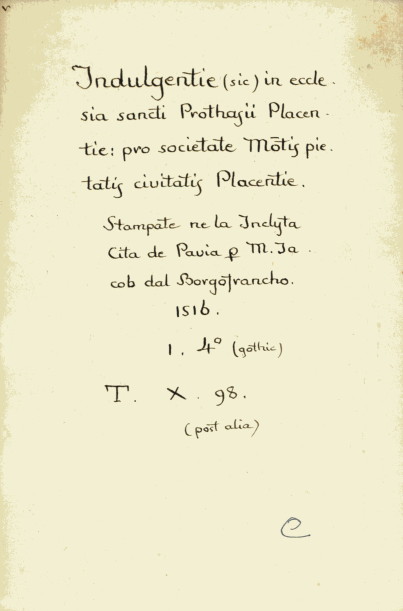 Indulgentie (sic) in eccle.
sia sancti Prothasii Placen.
tie: pro societate Mōtis pie.
tatis civitatis Placentie.
Stampate ne la Inclyta
Cita de Pavia ꝑ M. Ia.
cob dal Borgofrancho.
1516.
1. 4º (gothic)
T. X. 98.
(post alia)
C